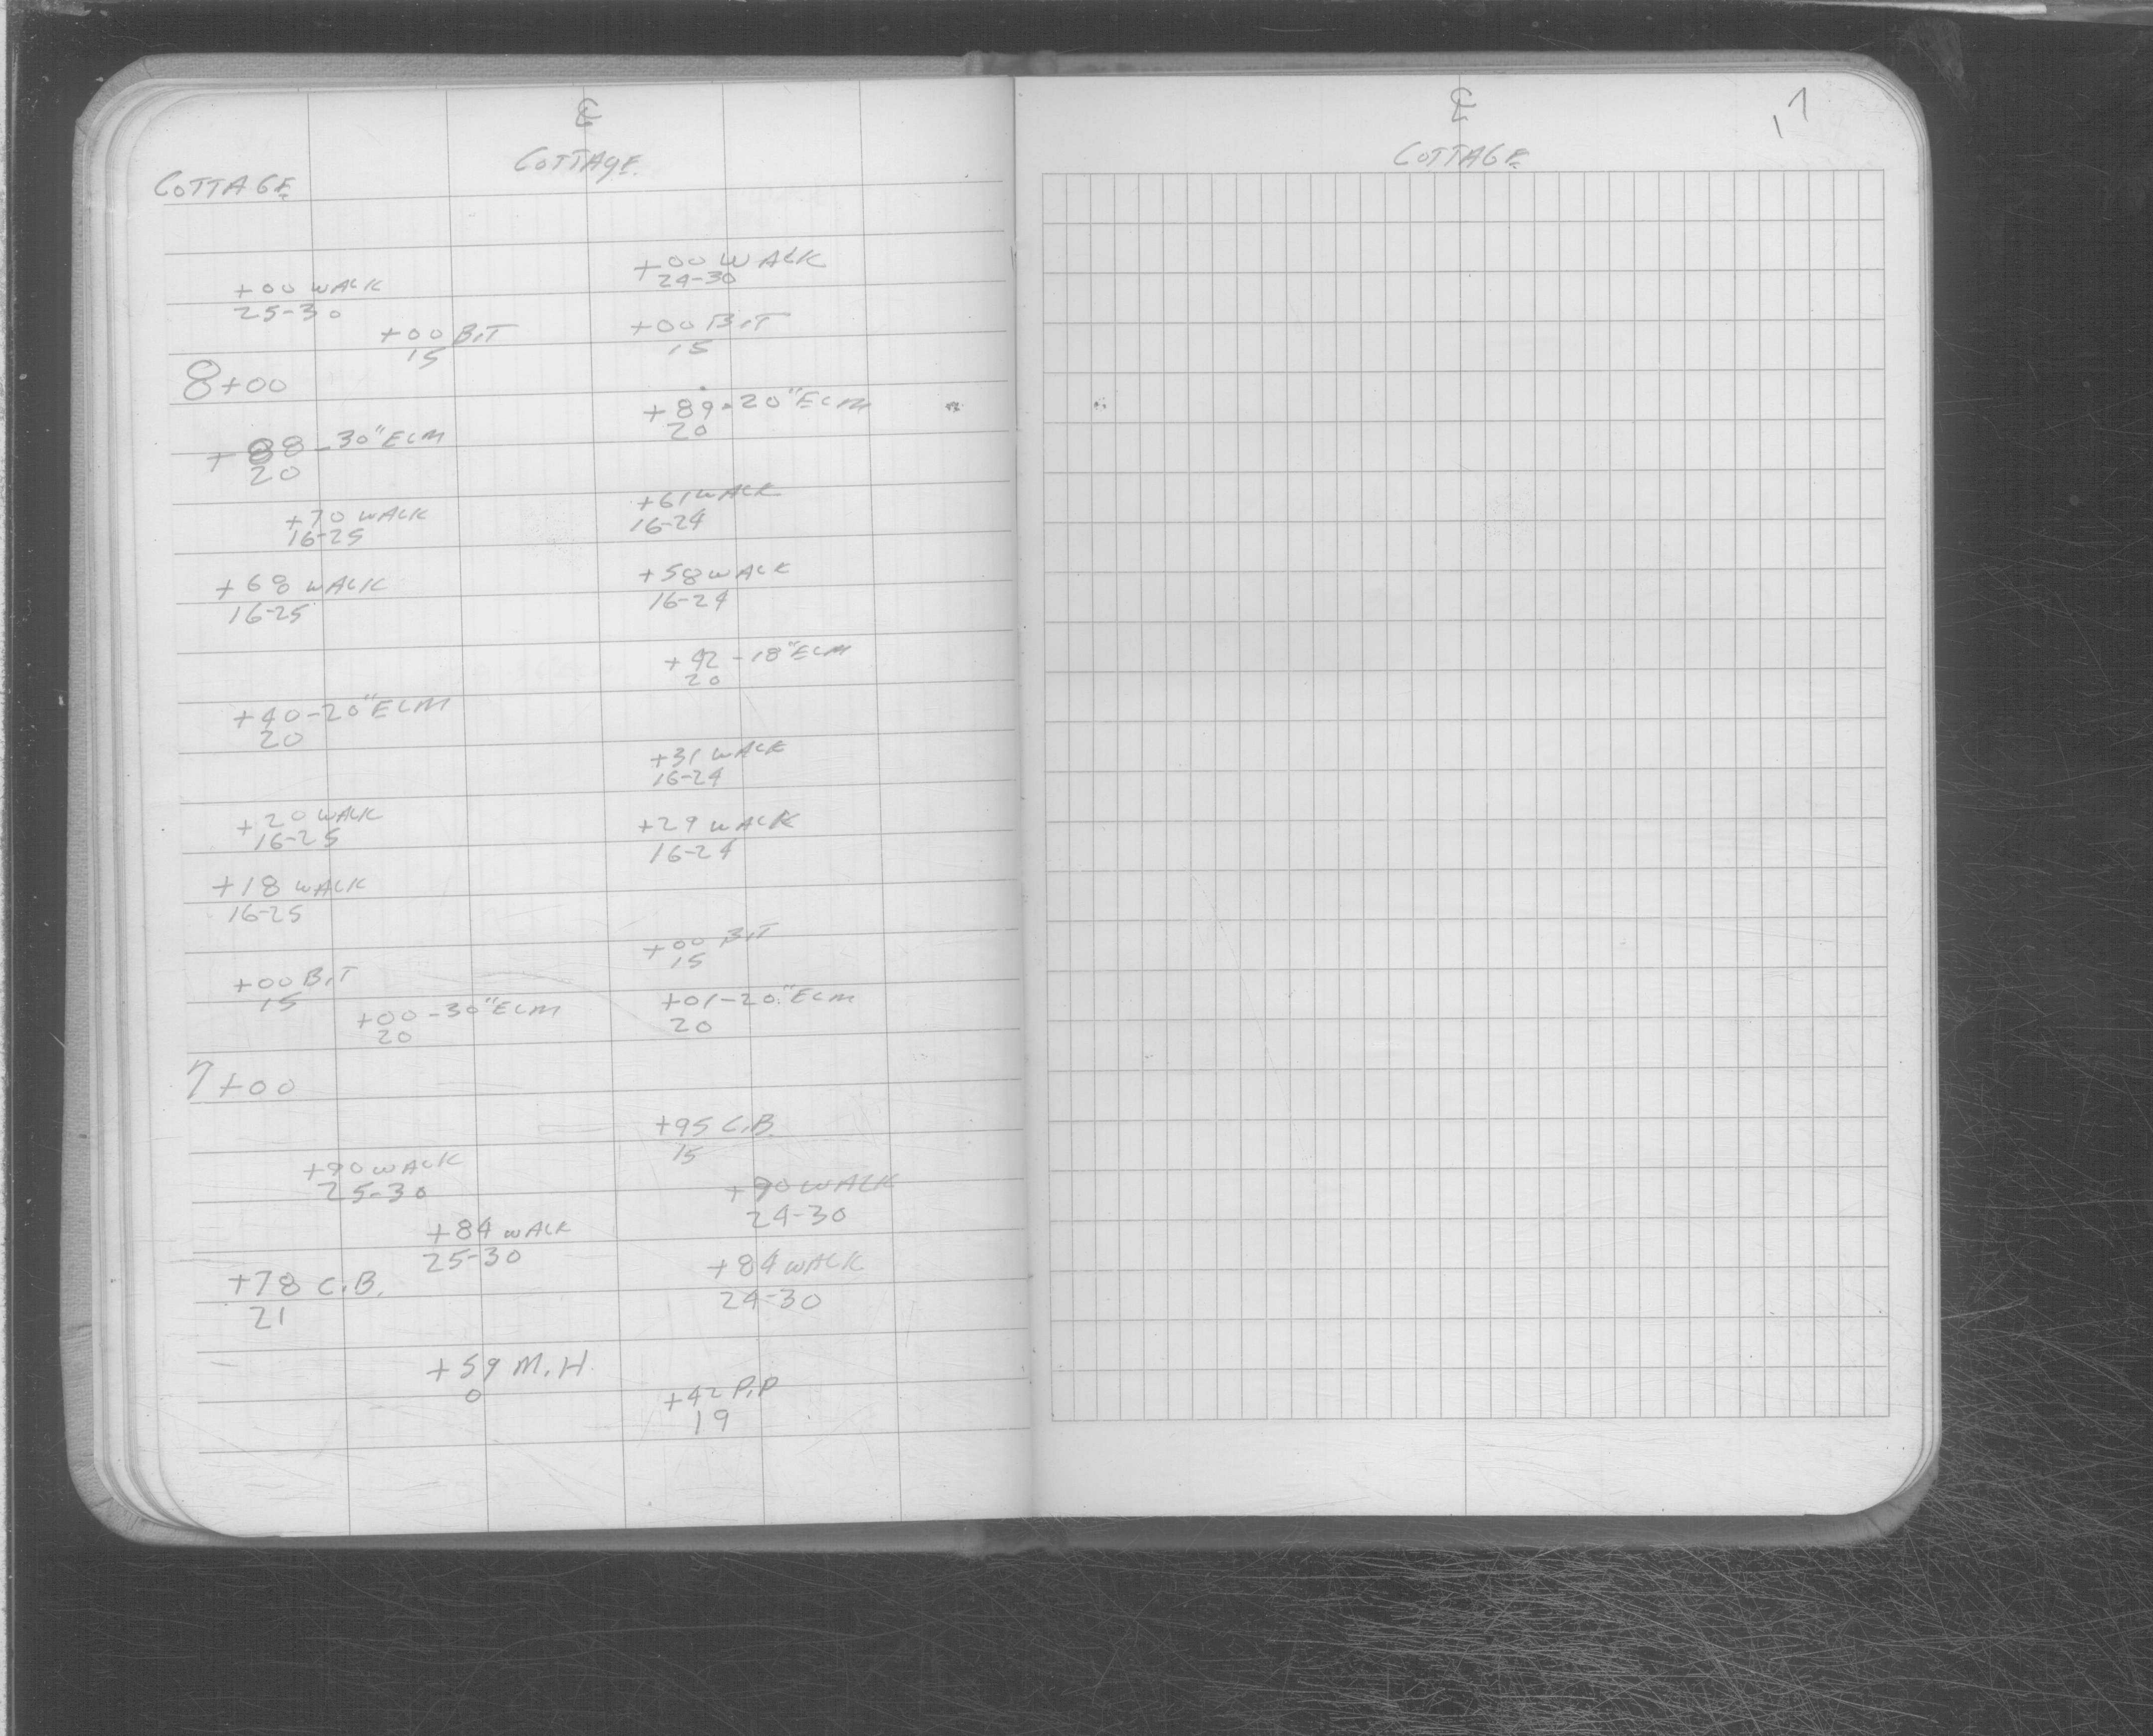 ℄
COTTAGE
COTTAGE.
+00 WALK
24-30
+00 WALK
25-30
+00 BIT
15
+00 BIT
15
8+00
+89-20" ELM
20
+88-30" ELM
20
+61 WALK
16-24
+70 WALK
16-25
+58 WALK
16-24
+68 WALK
16-25
+42-18" ELM
20
+40-20" ELM
20
+31 WALK
16-24
+20 WALK
16-25
+29 WALK
16-24
+18 WALK
16-25
+00 BIT
15
+00 BIT
15
+00-30" ELM
20
+01-20" ELM
20
7+00
+95 C.B.
15
+90 WALK
25-30
+90 WALK
24-30
+84 WALK
25-30
+84 WALK
24-30
+78 C.B.
21
+59 M.H.
0
+42 P.P
19
℄
COTTAGE